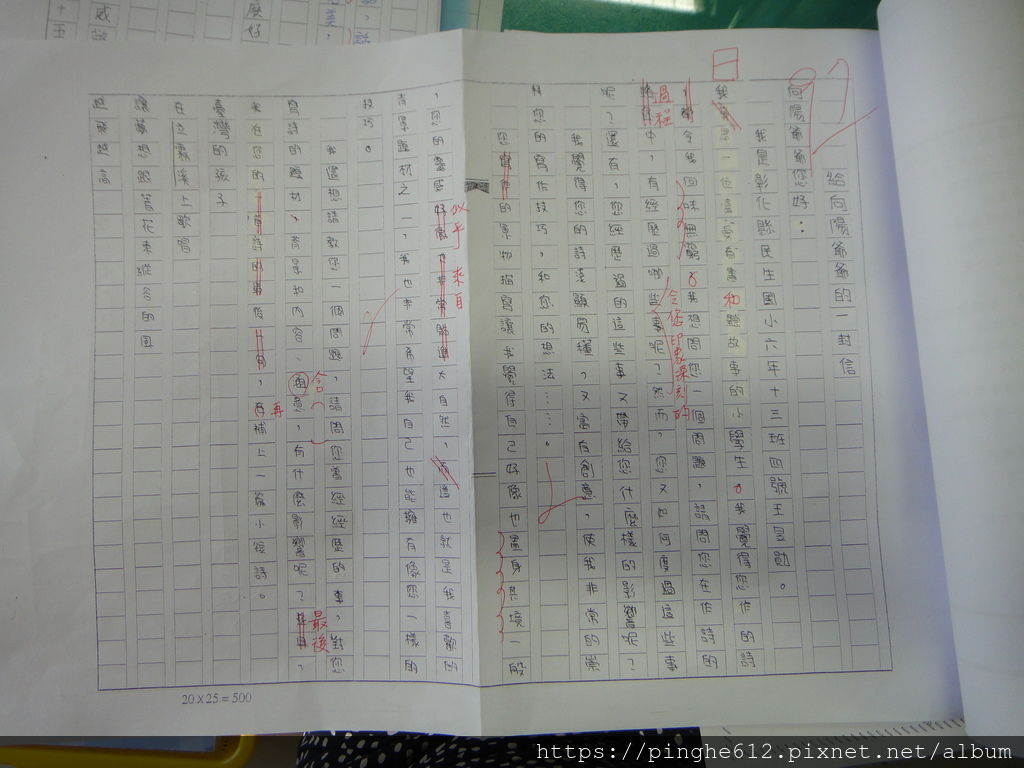 給向陽爺爺的一封信
向陽爺爺您好：
我是彰化縣民生國小六年十三班四號王
我是一位喜愛看書和聽故事的小學生。我覺得您作的詩
令我回味無窮。我想問您一個問題，請問您在作詩的
過程中，有經歷過哪些令您印象深刻的事呢？然而，您又如何度過這些事
呢？還有，您經歷過的這些事又帶給您什麼樣的影響呢？
我覺得您的詩淺顯易懂，又富有創意，使我非常的崇
拜您的寫作技巧，和您的想法……。
您的景物描寫讓我覺得自己好像也置身其境一般
，您的靈感似乎來自大自然，這也就是我喜歡的
背景題材之一，我也常常希望我自己也能擁有像您一樣的
技巧。
我還想請教您一個問題，請問您曾經經歷的事，對您
寫詩的題材、背景和內容、含意，有什麼影響呢？最後，
我在您的，再補上一篇小短詩。
臺灣的孩子
在立霧溪上歌唱
讓夢想跟著花東縱谷的風
越飛越高
20 X 25 = 500
97
https://pinghe612.pixnet.net/album